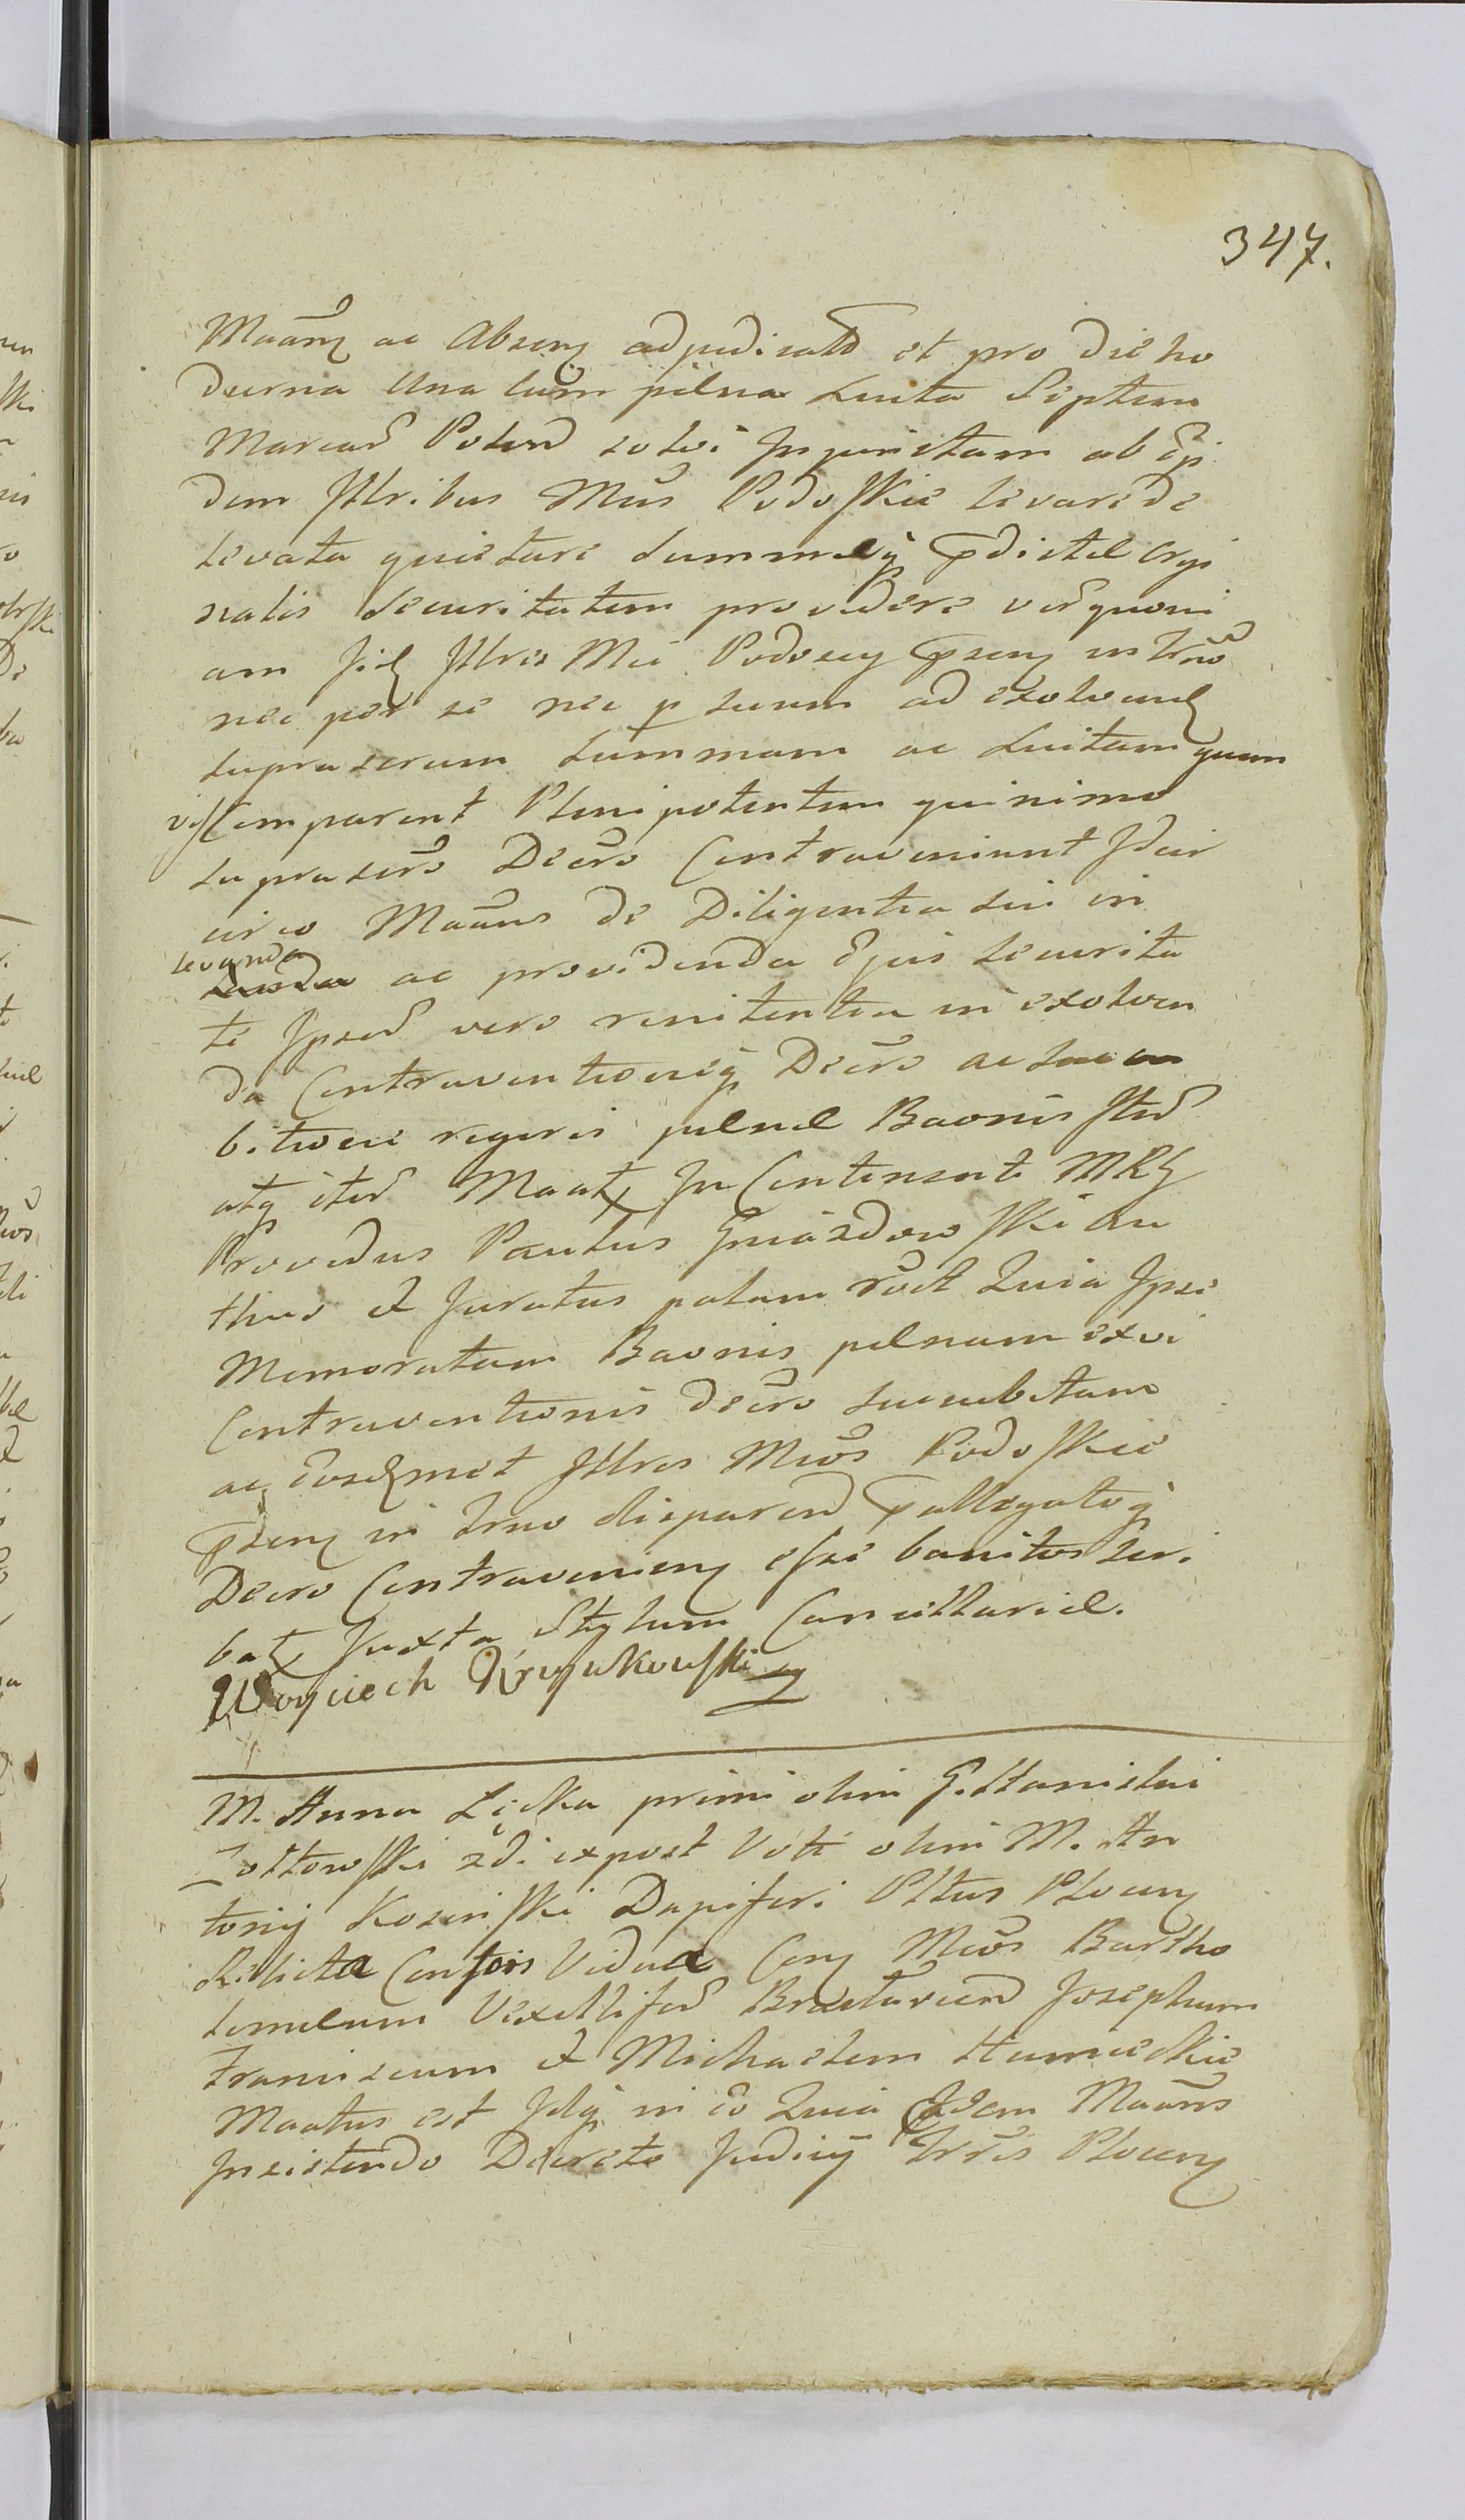 347.
Maam ac Absen adjudicatd et pro die ho
dierna Una cum pilna Luita Septem
Marcar Polon solvi Injunctam ab Eis
dem Illribus Mcis Podoskie levare de
levata quietare Summaeq pdictae Origi
nalis Securitatem providere verum quoni
am Iid Illres Mci Podoscy psens in trno
nec per se nec p suum ad exolvend
supra scrum Summam ac Luitam quam
vis Comparent Plenipotentem quinimo
supra scro Decro Contraveniunt Idcir
circo Maans de Diligentia sui in
levanda
ac providenda Ejus Securita
te Ipsor vero renitentia in exolven
da Contraventioneq Decro ac succu
bitione regeris pilnae Baonis sted
atq ited Maat In Continenti MRG
Providus Paulus Gniazdowski Au
thus et Juratus palam rost Quia Ipse
Memoratam Baonis pilnam ex vi
Contraventionis decro succubitam
ac eosdmet Illres Mcos Podoskie
psens in trno disparend pallegatoq
Decro Contravenien esse banitos scri
bat Juxta Stylum Cancellariae.
Woyciech Krzyukowski
M. Anna Lęcka primi olim G. Stanislai
Zołtowski 2di expost Voti olim M. An
tonij Kosinski Dapiferi Pltus Plocen
Relicta Contois Vidua Con Mcos Bartho
lomeum Vexilliferd Braclavien Josephum
Franciscum et Michaelem Humieckie
Maatus est Idq in eo Quia Eadem Maans
Insistendo Decreto Judicij Trris Plocen